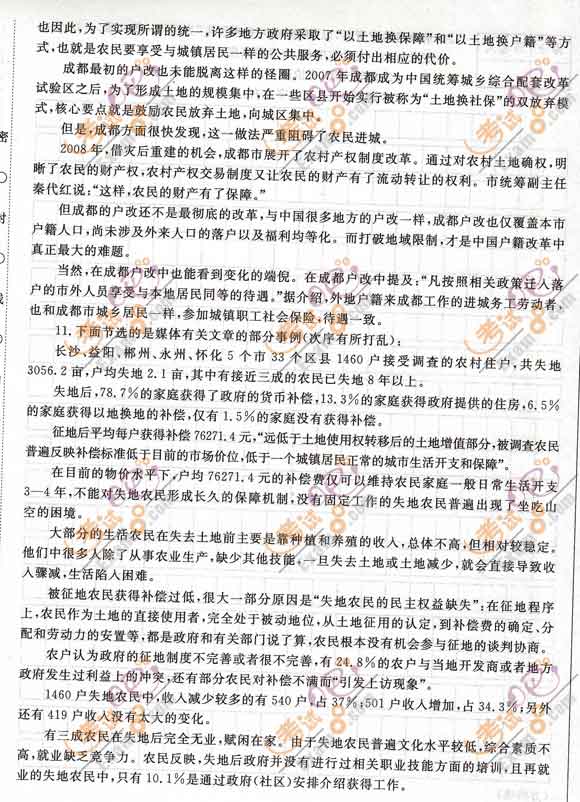 也因此,为了实现所谓的统一,许多地方政府采取了“以土地换保障”和“以土地换户籍”等方
式,也就是农民要享受与城镇居民一样的公共服务,必须付出相应的代价。
成都最初的户改也未能脱离这样的怪圈。2007年成都成为中国统筹城乡综合配套改革
试验区之后,为了形成土地的规模集中,在一些区县开始实行被称为“土地换社保”的双放弃模
式,核心要点就是鼓励农民放弃土地,向城区集中。
但是,成都方面很快发现,这一做法严重阻碍了农民进城。
2008年,借灾后重建的机会,成都市展开了农村产权制度改革。通过对农村土地确权,明
晰了农民的财产权,农村产权交易制度又让农民的财产有了流动转让的权利。市统筹副主任
秦代红说:“这样,农民的财产有了保障。”
但成都的户改还不是最彻底的改革,与中国很多地方的户改一样,成都户改也仅覆盖本市
户籍人口,尚未涉及外来人口的落户以及福利均等化。而打破地域限制,才是中国户籍改革中
真正最大的难题。
当然,在成都户改中也能看到变化的端倪。在成都户改中提及:“凡按照相关政策迁入落
户的市外人员享受与本地居民同等的待遇。”据介绍,外地户籍来成都工作的进城务工劳动者,
也和成都市城乡居民一样,参加城镇职工社会保险,待遇一致。
11.下面节选的是媒体有关文章的部分事例(次序有所打乱):
长沙、益阳、郴州、永州、怀化5个市33个区县1460户接受调查的农村住户,共失地
3056.2亩,户均失地2.1亩,其中有接近三成的农民已失地8年以上。
失地后,78.7%的家庭获得了政府的货币补偿,13.3%的家庭获得政府提供的住房,6.5%
的家庭获得以地换地的补偿,仅有1.5%的家庭没有获得补偿。
征地后平均每户获得补偿76271.4元,“远低于土地使用权转移后的土地增值部分,被调查农民
普遍反映补偿标准低于目前的市场价位,低于一个城镇居民正常的城市生活开支和保障”。
在目前的物价水平下,户均76271.4元的补偿费仅可以维持农民家庭一般日常生活开支
3—4年,不能对失地农民形成长久的保障机制,没有固定工作的失地农民普遍出现了坐吃山
空的困境。
大部分的生活农民在失去土地前主要是靠种植和养殖的收入,总体不高,但相对较稳定。
他们中很多人除了从事农业生产,缺少其他技能,一旦失去土地或土地减少,就会直接导致收
入骤减,生活陷入困难。
被征地农民获得补偿过低,很大一部分原因是“失地农民的民主权益缺失”:在征地程序
上,农民作为土地的直接使用者,完全处于被动地位,从土地征用的认定,到补偿费的确定、分
配和劳动力的安置等,都是政府和有关部门说了算,农民根本没有机会参与征地的谈判协商。
农户认为政府的征地制度不完善或者很不完善,有24.8%的农户与当地开发商或者地方
政府发生过利益上的冲突,还有部分农民对补偿不满而“引发上访现象”。
1460户失地农民中,收入减少较多的有540户,占37%;501户收入增加,占34.3%;另外
还有419户收入没有太大的变化。
有三成农民在失地后完全无业,赋闲在家。由于失地农民普遍文化水平较低,综合素质不
高,就业缺乏竞争力。农民反映,失地后政府并没有进行过相关职业技能方面的培训,且再就
业的失地农民中,只有10.1%是通过政府(社区)安排介绍获得工作。